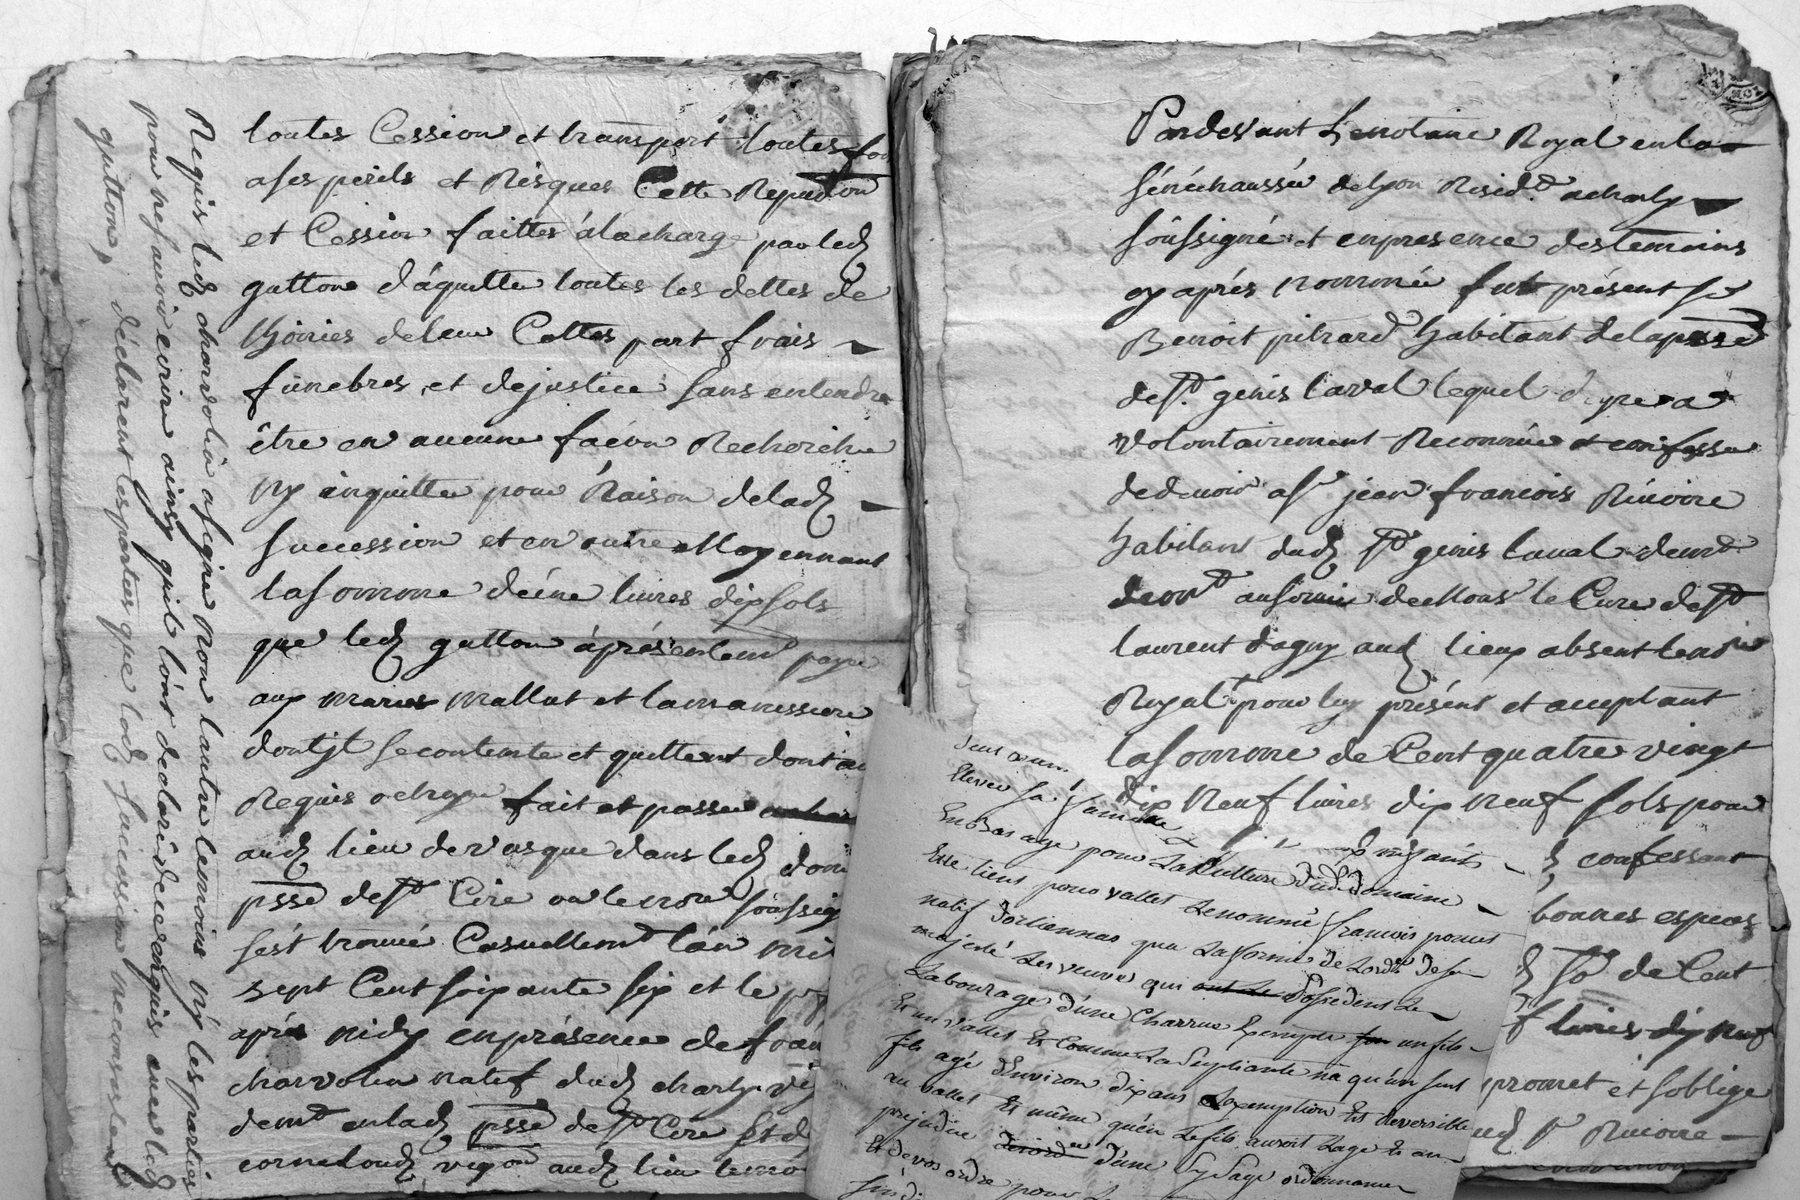 toutes Cession et transport toutes fou
ases perils et Risques Cette Repudion
et Cession faittes àlacharge par led
gutton d'áquitte toutes les dettes de
hoiries deleur Cottes part frais
fûnebres et dejustice sans entendre
être en aucune facon Recherche
ny inquitte pour Raison delad
succession et en outre Moyennant
lasomme deúne livres dixsols
que led gutton áprésentemt paye
aux maries mallat et
dontjt se contente et quittent dont
Requis octroye fait et passe
aud lieu devasque dans led dom
psse de st Cire ou le nore soussig
sést trouvé Casuellemt l'an mil
sept Cent soixante six et le
aprés midy enprésence de fran
charvolin natif dud charly
demt enlad psse de st Cire et
aud lieu
Requis led charvolin asigne non lautre temoins ny les parties
pour nesavoir ecrire ainsy quil lont declaré de ce enquis avec led
gutton, déclarent les parties que lad succession ne consiste
Pardevant Lenotaire Royal enla
sénéchaussée delyon Residt acharly
soûssigné et enpresence destemoins
cy aprés nommé fut présent sr
Benoit pitrard habitant delapsse
de st genis laval lequel degre a
volontairement Reconnue et confesse
dedevoir a sr jean francois Rivoire
habitant dud st genis laval demt
demt auservice deMonsr le Cure de st
laurent dagny aud lieux absent lenore
Royalt pour luy présent et acceptant
lasomme de Cent quatre vingt
dix Neuf livres dix neuf sols pour
confessant
bonnes especes
sr de Cent
livres dix neuf
promet et soblige
sr Rivoire
Elever sa famille
Enbas age pour LaCulture dud domaine
Elle tient pour vallet Lenommé francois
natif dorliennas que Laforme de Lordre desa
majesté Les veuves qui ont Le possedent Le
Labourage d'une Charrue Exempte un fils
Et un vallet Et Comme La Supliante na qu'un seul
fils agé denviron dix ans Lexemption Est Reversible
au vallet Et même quén Lefils auroit Lage Et au
prejudice d'une Sy Sage ordonnance
Et devos ordre pour